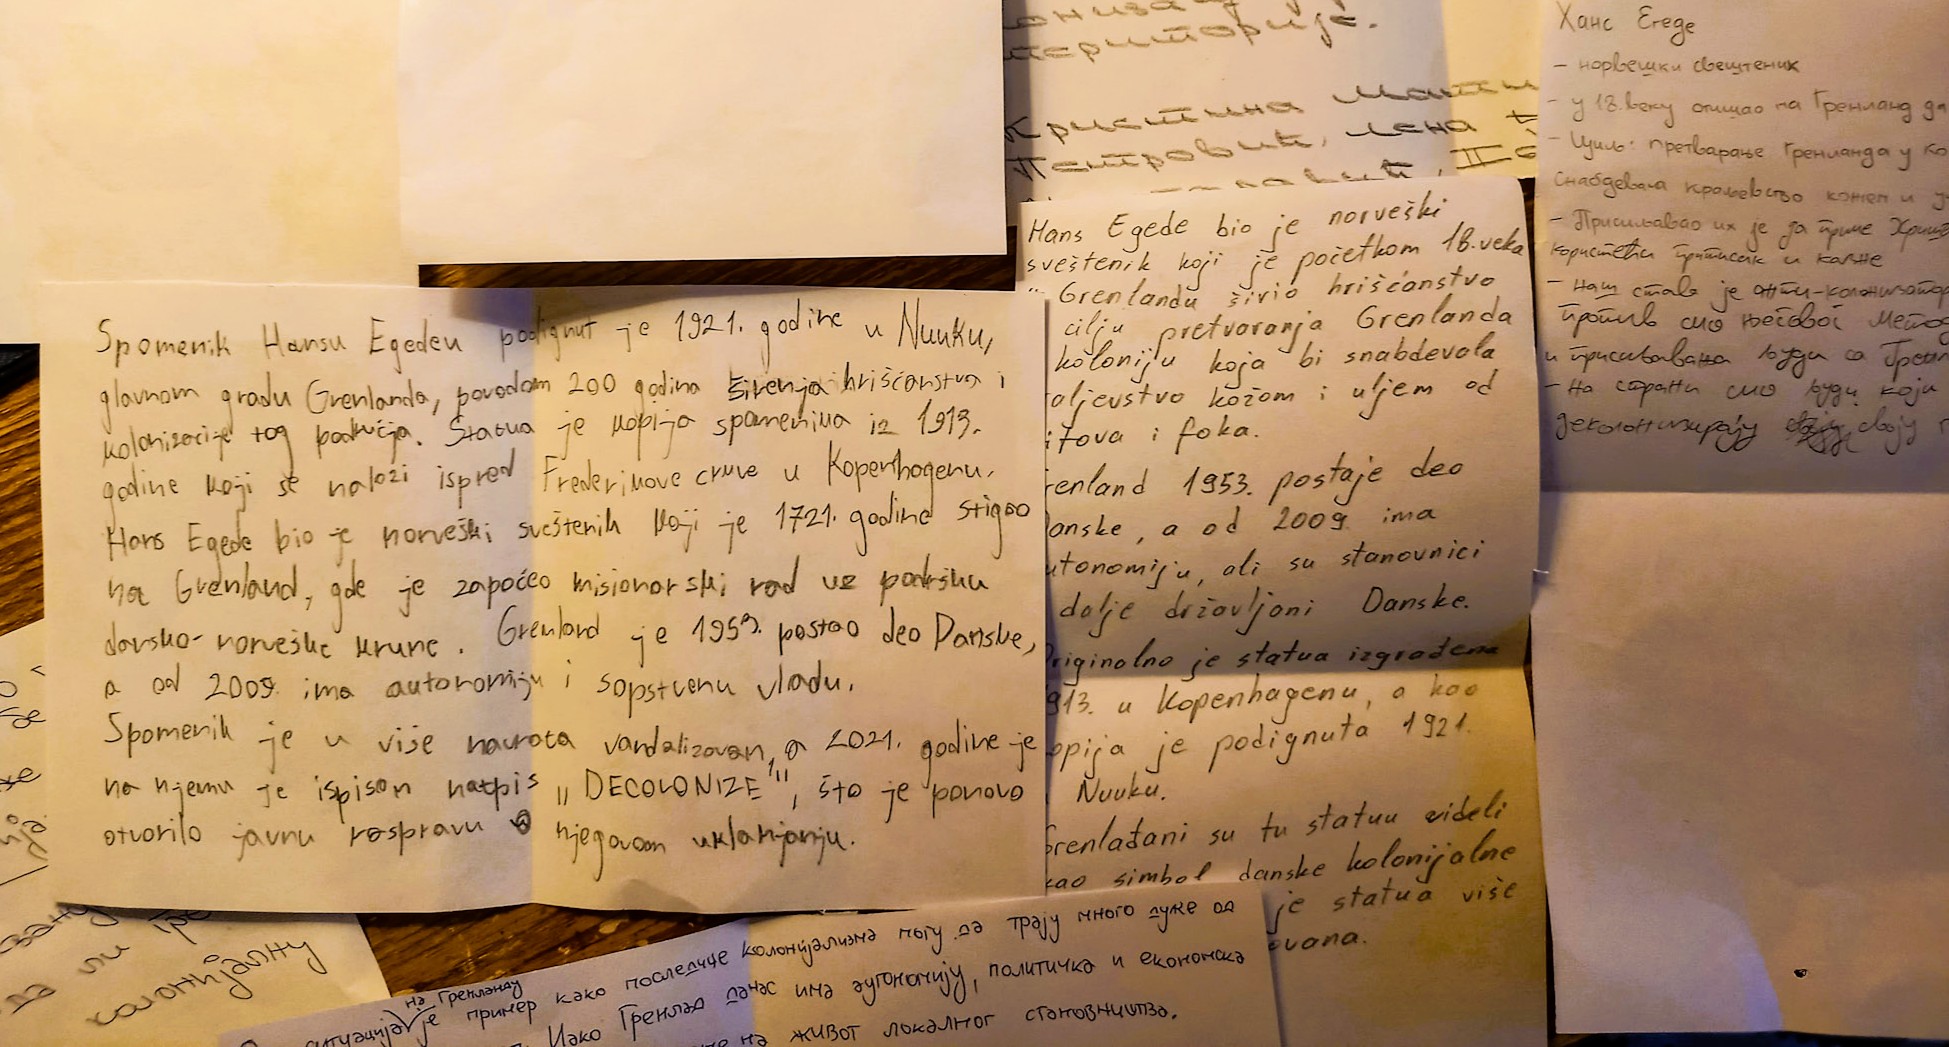 Spomenik Hansu Egedeu podignut je 1921. godine u Nuuku,
glavnom gradu Grenlanda, povodom 200 godina širenja hrišćanstva i
kolonizacije tog područja. Statua je kopija spomenika iz 1913.
godine koji se nalazi ispred Frederikove crkve u Kopenhagenu.
Hans Egede bio je norveški sveštenik koji je 1721. godine stigao
na Grenland, gde je započeo misionarski rad uz podršku
dansko-norveške krune. Grenland je 1953. postao deo Danske,
a od 2009. ima autonomiju i sopstvenu vladu.
Spomenik je u više navrata vandalizovan, a 2021. godine je
na njemu je ispisan natpis „DECOLONIZE", što je ponovo
otvorilo javnu raspravu o njegovom uklanjanju.
територије.
Кристина
Петровић, Лена
Hans Egede bio je norveški
sveštenik koji je početkom 18. veka
Grenlandu širio hrišćanstvo
cilju pretvaranja Grenlanda
koloniju koja bi snabdevala
aljevstvo kožom i uljem od
itova i foka.
renland 1953. postaje deo
anske, a od 2009. ima
utonomiju, ali su stanovnici
dalje državljani Danske.
riginalno je statua izgrađena
913. u Kopenhagenu, a kao
opija je podignuta 1921.
Nuuku.
Grenlađani su tu statuu videli
kao simbol danske kolonijalne
je statua više
ovana.
Ханс Егеде
- норвешки свештеник
- у 18. веку отишао на Гренланд да
- Циљ: претварање Гренланда у ко
снабдевала краљевство кожом и у
- Присиљавао их је да приме Хришћ
користећи притисак и казне
- Наш став је анти-колонизатор
против смо његовог метод
и присиљавања људи са Грен
- На страни смо људи који
деколонизирају своју
колонијалну
ситуација на Гренланду је пример како последице колонијализма могу да трају много дуже од
Иако Гренланд данас има аутономију, политичка и економска
на живот локалног становништва.